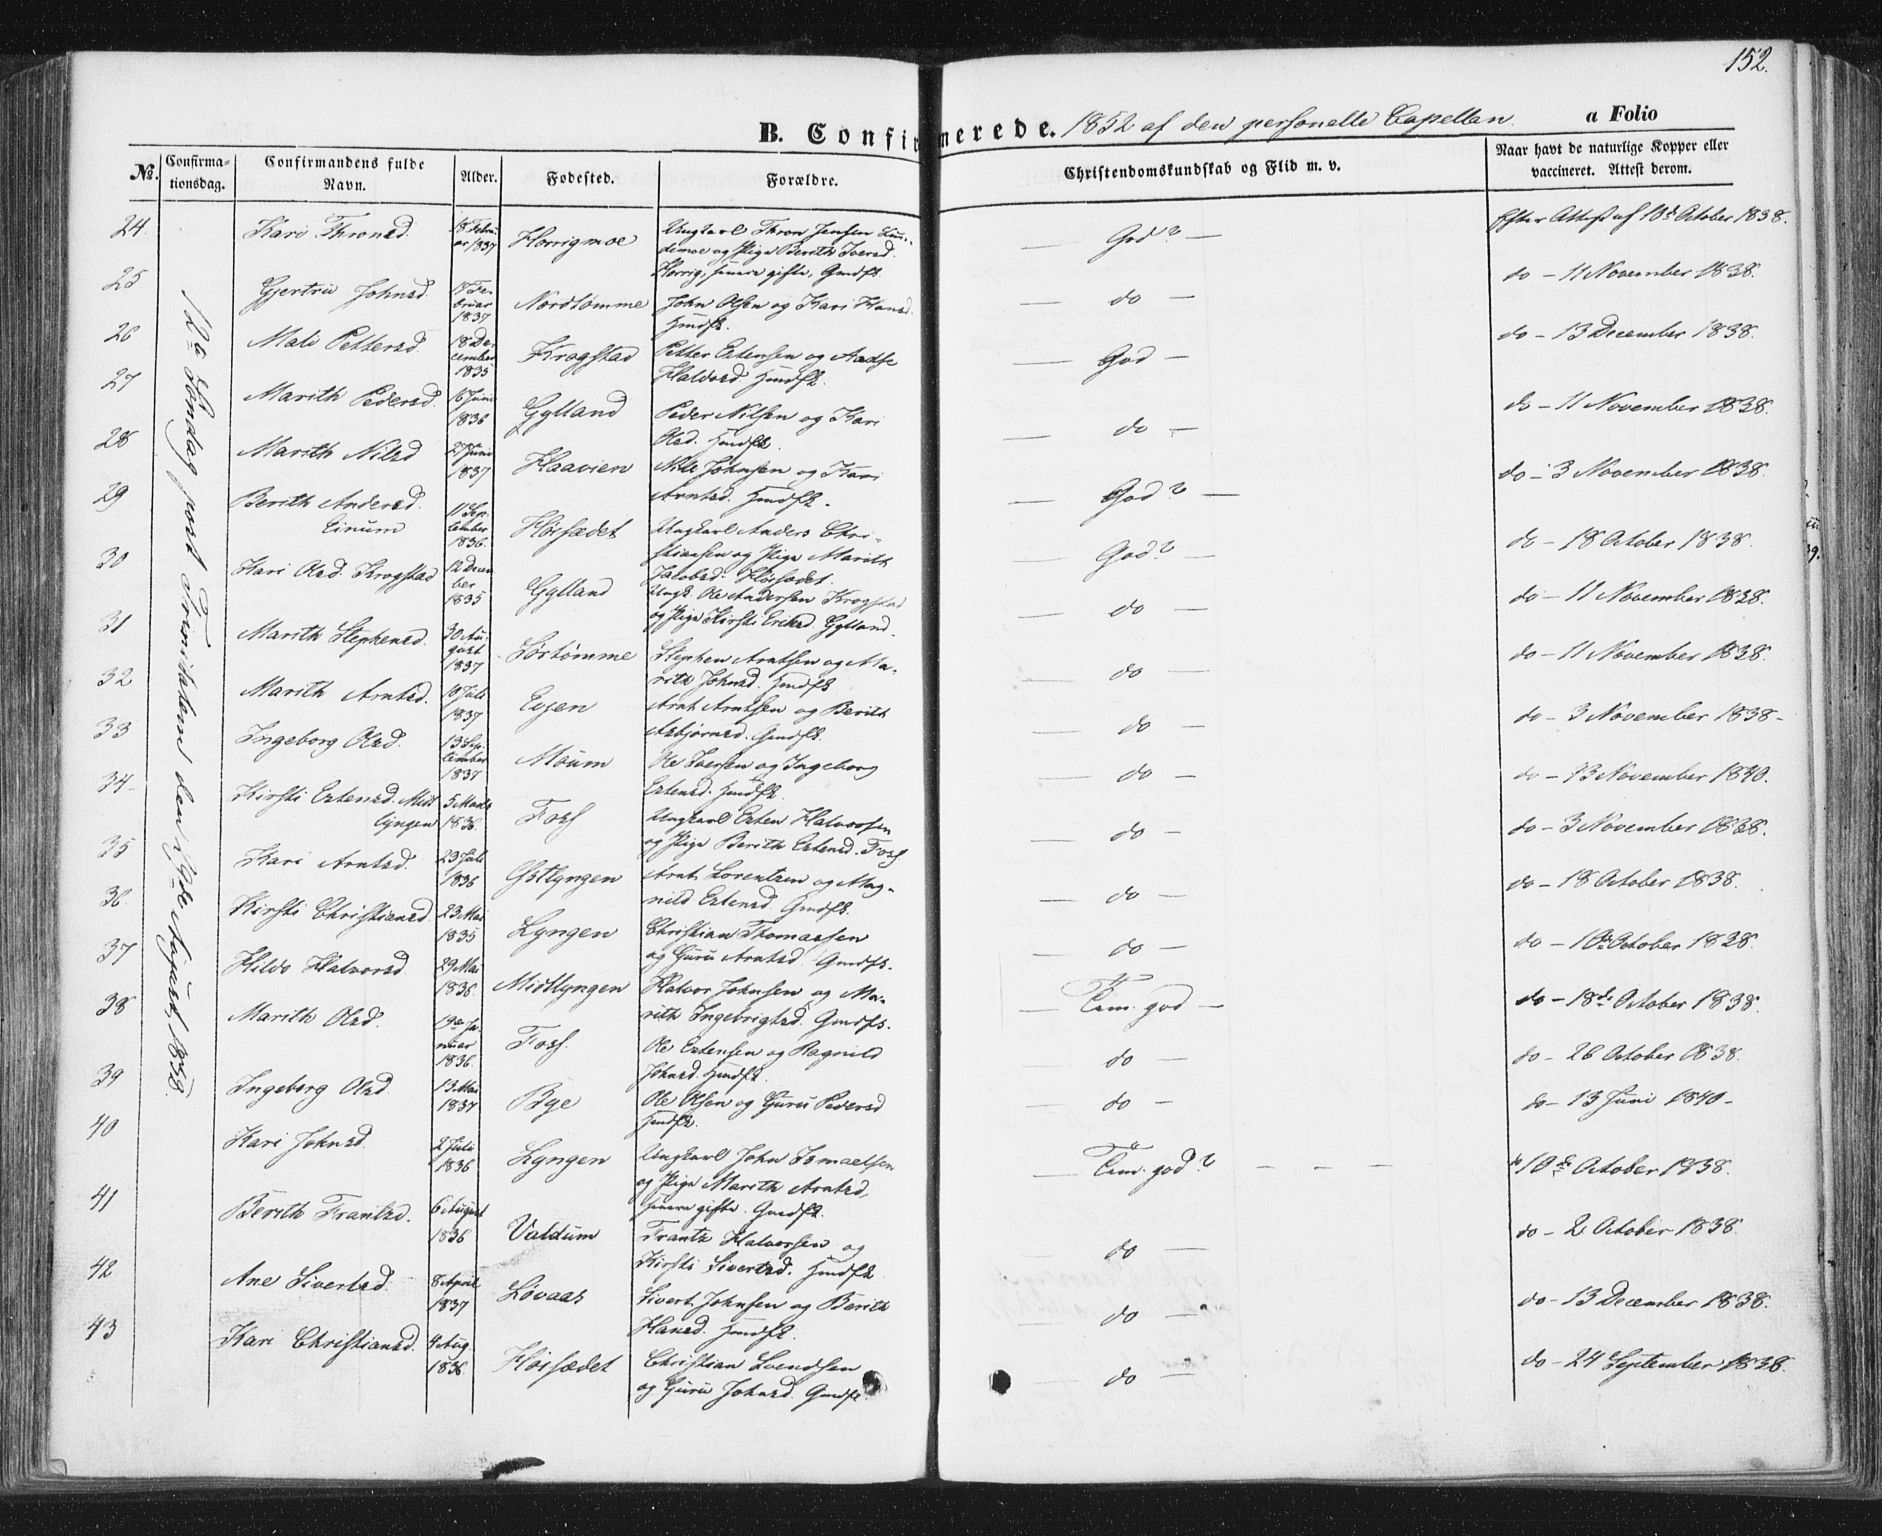 152.
B. Confirmerede. 1852 af den personelle Capellan. a Folio
No. Confirmationsdag. Confirmandens fulde Navn. Alder. Fødested. Forældre. Christendomskundskab og Flid m. v. Naar havt de naturlige Kopper eller vaccineret. Attest derom.
12te Søndag post Trinitatem den August 1852.
24 Kari Thronsd. 18 Februar 1837 Horrigmoe Ungkarl Thron Jensen Lundemoe og Pige Berith Iversd. Horrig, senere gifte, Gmdfk. — God? — Efter Attest af 18de October 1838.
25 Gjertru Johnsd. 17 Februar 1837 Nordtømme John Olsen og Kari Hansd. Hmdfk. — do — do — 11 November 1838.
26 Mali Pettersd 18 December 1835 Krogstad Petter Estensen og Aadse Halvorsd. Hmdfk. — God — do — 13 December 1838.
27 Marith Pedersd. 6 Juni 1836 Gylland Peder Nilsen og Kari Olsd. Hmdfk. — do — do — 11 November 1838.
28 Marith Nilsd 27 Juni 1837 Haavien Nils Johnsen og Kari Arntsd. Hmdfk. — God? — do — 3 November 1838.
29 Berith Andersd. Einum 11 September 1836. Høisædet Ungkarl Anders Christiansen og Pige Marith Jacobsd. Høisædet. — God? — do — 18 October 1838.
30 Kari Olsd. Krogstad 12 December 1835 Gylland Ungk. Ole Andersen Krogstad og Pige Kirsti Eriksd. Gylland. — do — do — 11 November 1838.
31 Marith Stephensd. 30 August 1837 Sørtømme Stephen Arntsen og Marith Johnsd. Hmdfk — do — do — 11 November 1838.
32 Marith Arntsd. 10 Juli 1837 Eggen Arnt Arntsen og Berith Asbjørnsd. Gmdfk. — do — do — 3 November 1838 -
33 Ingeborg Olsd. 13 September 1837 Moum Ole Iversen og Ingeborg Estensd. Hmdfk. — do — do — 13 November 1840.
34 Kirsti Estensd. Midtlyngen 5 Marts 1836. Foss Ungkarl Esten Halvorsen og Pige Berith Estensd. Foss — do — do — 3 November 1838.
35 Kari Arntsd. 23 Juli 1836 Østlyngen Arnt Lorentzen og Magnild Estensd. Gmdfk. — do — do — 18 October 1838.
36. Kirsti Christiansd. 23 Mai 1835 Lyngen Christian Thomassen og Guru Arntsd. Gmdfk. — do — do — 10de October 1838.
37 Hildo Halvorsd. 29 Mai 1836. Midtlyngen Halvor Johnsen og Marith Ingebrigtsd. Gmdfk. — Tem. god — do — 18de October 1838.
38 Marith Olsd. 19de Januar 1836. Foss. Ole Estensen og Ragnild Johnsd. Hmdfk. — do — do — 26 October 1838.
39 Ingeborg Olsd. 13 Mai 1837 Bye Ole Olsen og Guru Pedersd Hmdfk. — do — do — 13 Juni 1840 -
40 Kari Johnsd. 2 Juli 1836 Lyngen Ungkarl John Ismaelsen og Pige Marith Arntsd, senere gifte. Gmdfk. — Tem. god? — — — 10de October 1838.
41 Berith Frantsd. 6 August 1836 Valdum Frantz Halvorsen og Kirsti Sivertsd. Hmdfk — do — do — 2 October 1838.
42 Ane Sivertsd. 8 April 1837 Løvaas Sivert Johnsen og Berith Hansd. Hmdfk. — do — do — 13 December 1838.
43 Kari Christiansd. 4 Aug. 1836. Høisædet Christian Svendsen og Guru Johnsd. Gmdfk. — do — do — 24 September 1838.